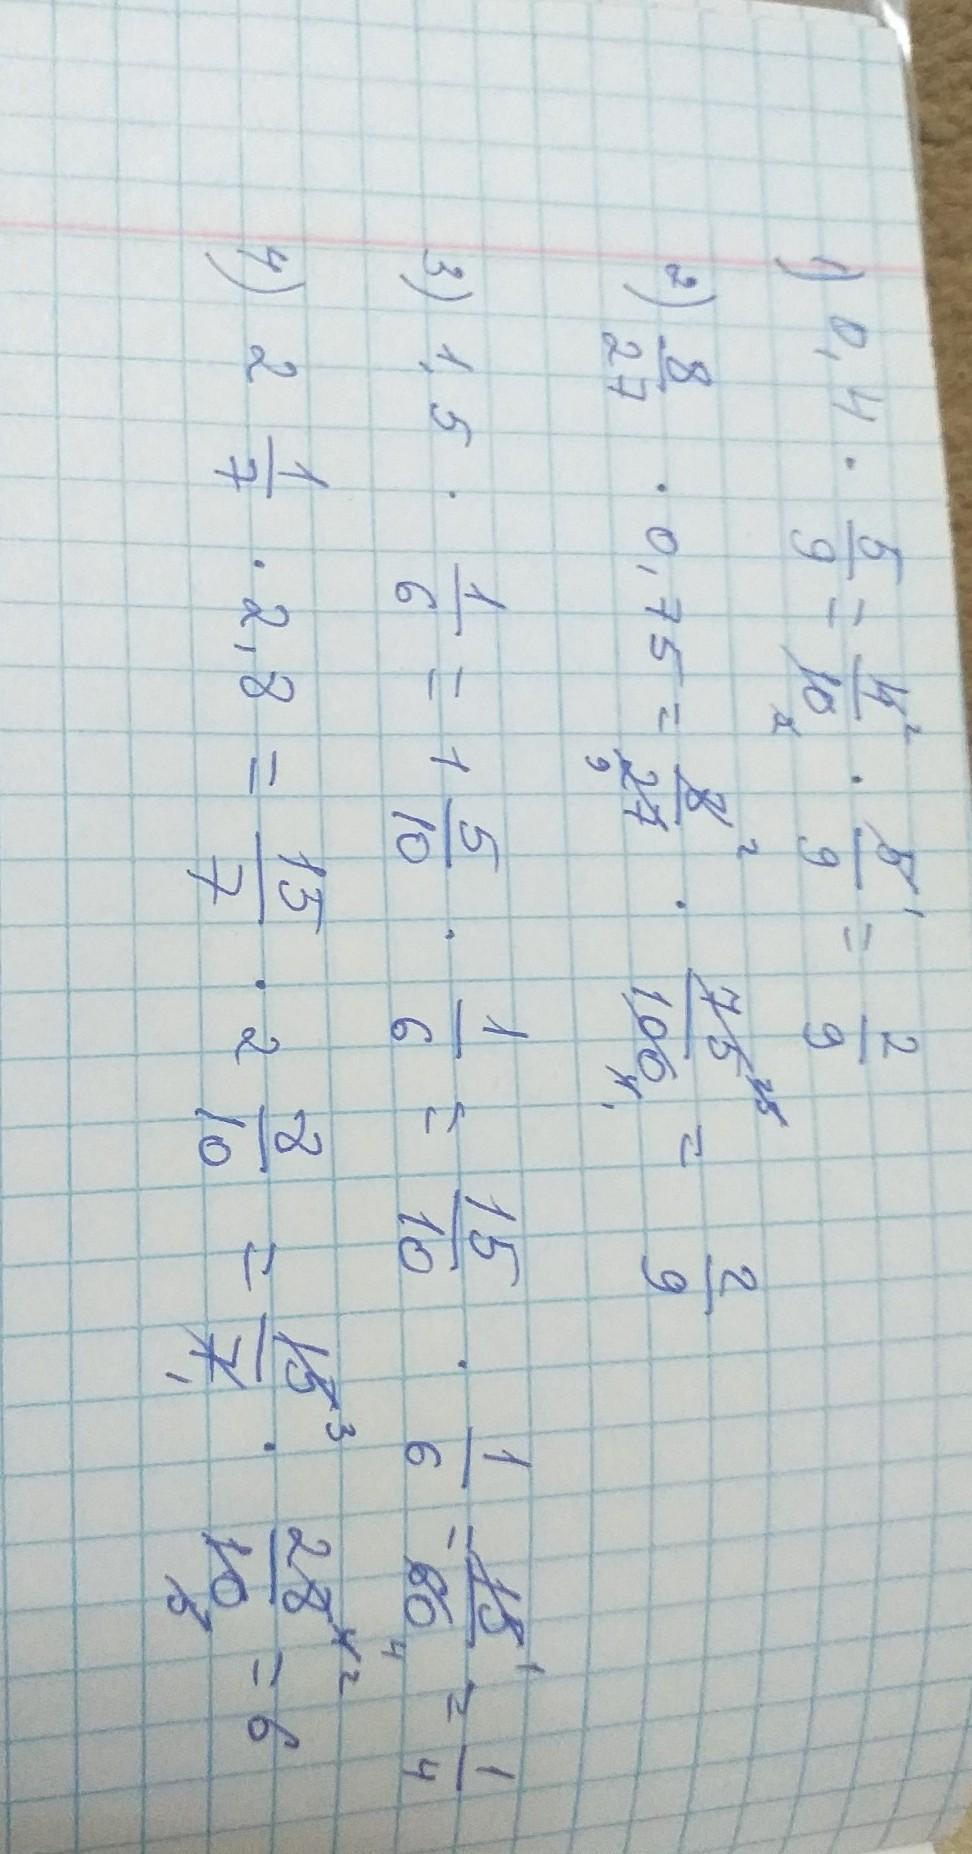 1) 0,4 · 5/9 = 4²/10₂ · 5¹/9 = 2/9
2) 8/27 · 0,75 = 8²/27₉ · 75²⁵/100₄₁ = 2/9
3) 1,5 · 1/6 = 1 5/10 · 1/6 = 15/10 · 1/6 = 15¹/60₄ = 1/4
4) 2 1/7 · 2,8 = 15/7 · 2 8/10 = 15³/7₁ · 28⁴²/10₅ = 6